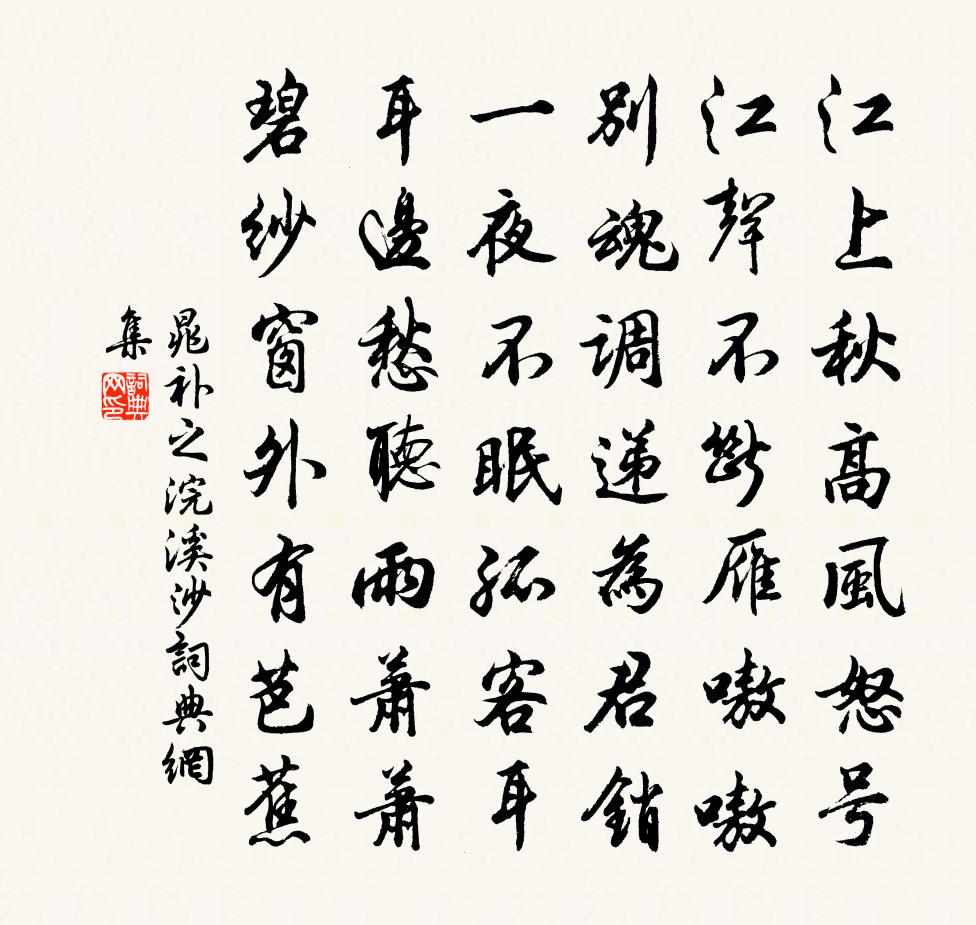 江上秋高風怒号
江聲不斷雁嗷嗷
別魂調遞為君銷
一夜不眠孤客耳
耳邊愁聽雨蕭蕭
碧紗窗外有芭蕉
晁补之浣溪沙詞典網
集
詞典網印